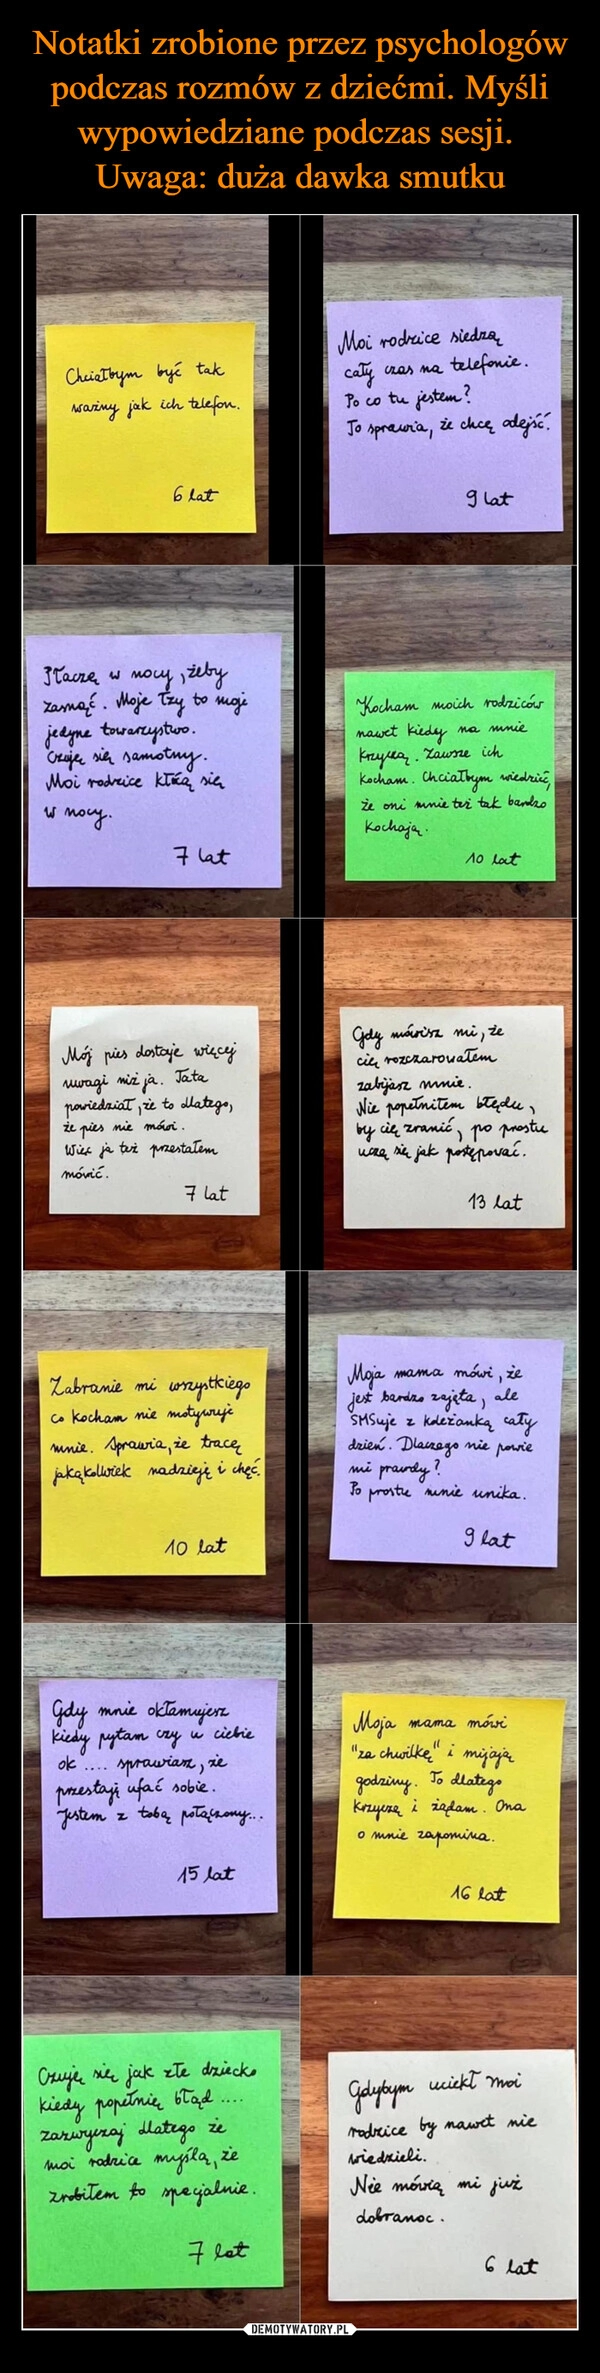 Notatki zrobione przez psychologów
podczas rozmów z dziećmi. Myśli
wypowiedziane podczas sesji.
Uwaga: duża dawka smutku
Chciałbym być tak
ważny jak ich telefon.
6 lat
Moi rodzice siedzą
cały czas na telefonie.
Po co tu jestem?
To sprawia, że chcę odejść.
9 lat
Płaczę w nocy, żeby
zasnąć. Moje łzy to moje
jedyne towarzystwo.
Czuję się samotny.
Moi rodzice kłócą się
w nocy.
7 lat
Kocham moich rodziców
nawet kiedy na mnie
krzyczą. Zawsze ich
kocham. Chciałbym wiedzieć,
że oni mnie też tak bardzo
kochają.
10 lat
Mój pies dostaje więcej
uwagi niż ja. Tata
powiedział, że to dlatego,
że pies nie mówi.
Więc ja też przestałem
mówić.
7 lat
Gdy mówisz mi, że
cię rozczarowałem
zabijasz mnie.
Nie popełniłem błędu,
by cię zranić, po prostu
uczę się jak postępować.
13 lat
Zabranie mi wszystkiego
co kocham nie motywuje
mnie. Sprawia, że tracę
jakąkolwiek nadzieję i chęć.
10 lat
Moja mama mówi, że
jest bardzo zajęta, ale
SMSuje z koleżanką cały
dzień. Dlaczego nie powie
mi prawdy?
Po prostu mnie unika.
9 lat
Gdy mnie okłamujesz
kiedy pytam czy u ciebie
ok .... sprawiasz, że
przestaję ufać sobie.
Jestem z tobą połączony...
15 lat
Moja mama mówi
"za chwilkę" i mijają
godziny. To dlatego
krzyczę i żądam. Ona
o mnie zapomina.
16 lat
Czuję się jak złe dziecko
kiedy popełnię błąd ....
zazwyczaj dlatego że
moi rodzice myślą, że
zrobiłem to specjalnie.
7 lat
Gdybym uciekł moi
rodzice by nawet nie
wiedzieli.
Nie mówią mi już
dobranoc.
6 lat
DEMOTYWATORY.PL